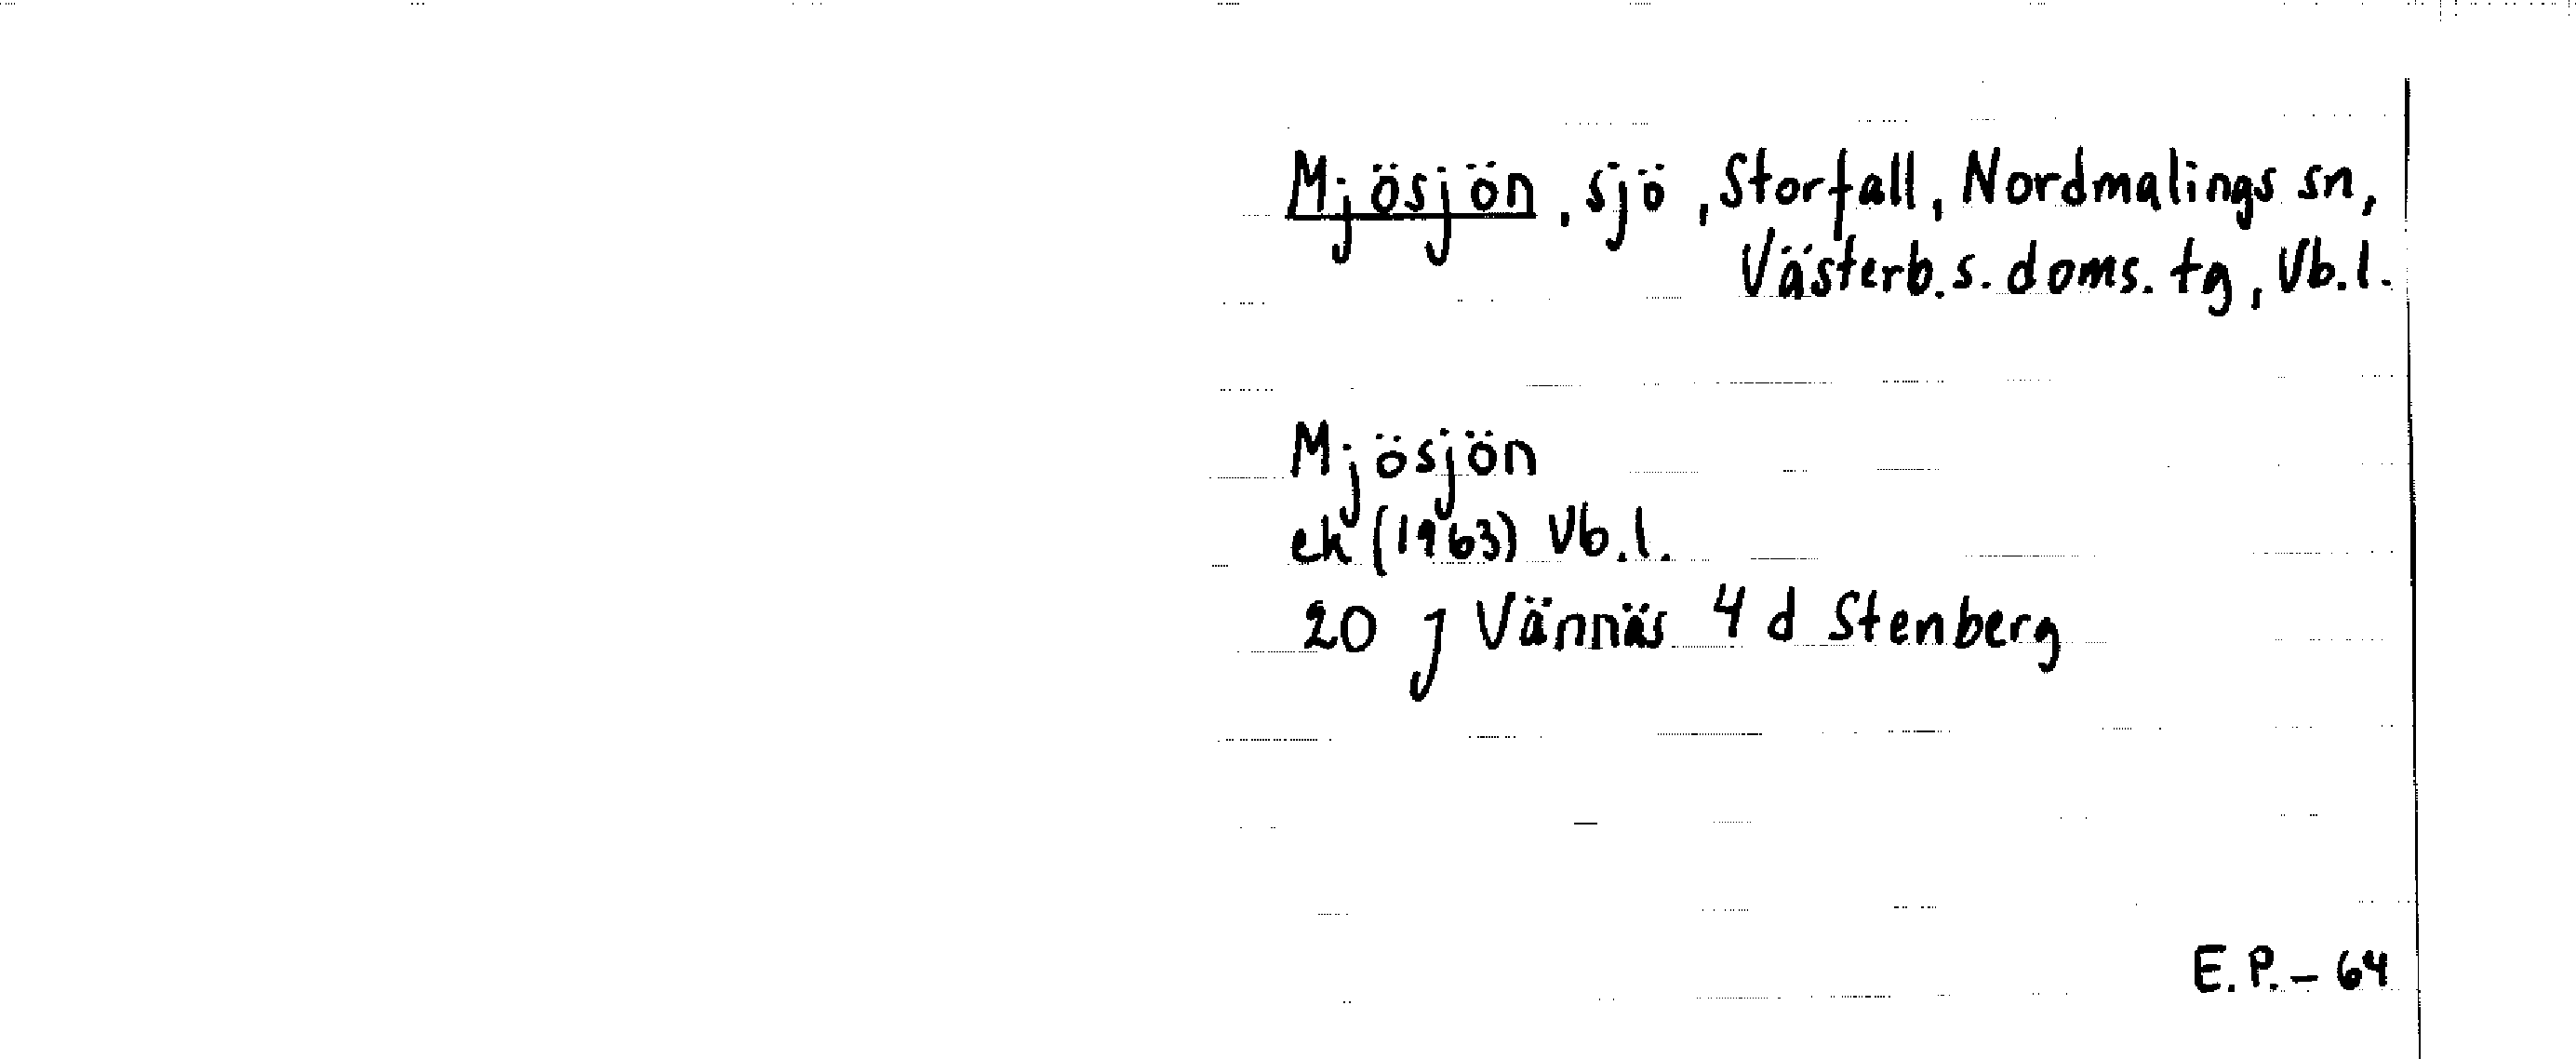 Mjösjön, sjö, Storfall, Nordmalings sn,
Västerb.s. doms. tg, Vb.l.
Mjösjön
ek (1963) Vb.l.
20 J Vännäs 4 d Stenberg
E.P.-64